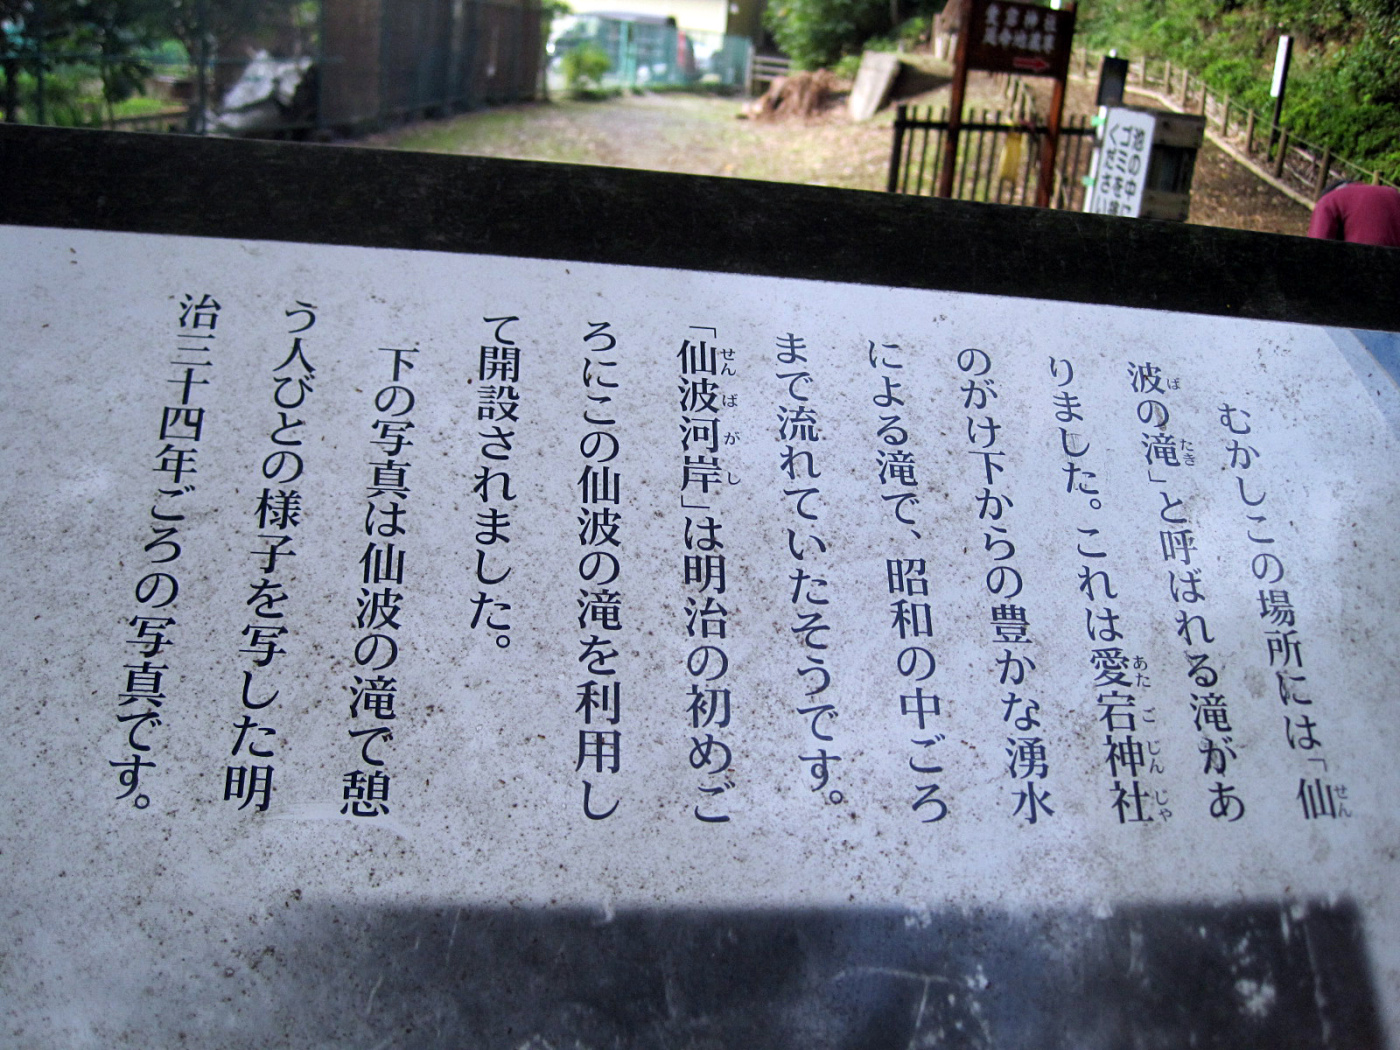 むかしこの場所には「仙
波の滝」と呼ばれる滝があ
りました。これは愛宕神社
のがけ下からの豊かな湧水
による滝で、昭和の中ごろ
まで流れていたそうです。
「仙波河岸」は明治の初めご
ろにこの仙波の滝を利用し
て開設されました。
下の写真は仙波の滝で憩
う人びとの様子を写した明
治三十四年ごろの写真です。
せん
ば
たき
あた ご じん じゃ
せん ば が し
愛宕神社
池の中に
ゴミを
ください